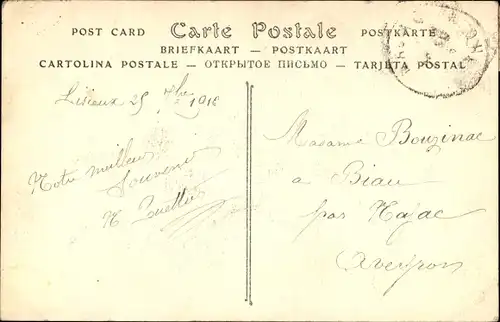 POST CARD Carte Postale POSTKARTE
BRIEFKAART — POSTKAART
CARTOLINA POSTALE — ОТКРЫТОЕ ПИСЬМО — TARJETA POSTAL
Lisieux 25 7bre 1916
Notre meilleur
Souvenir
Madame Bouzinac
a Biau
par Najac
Aveyron